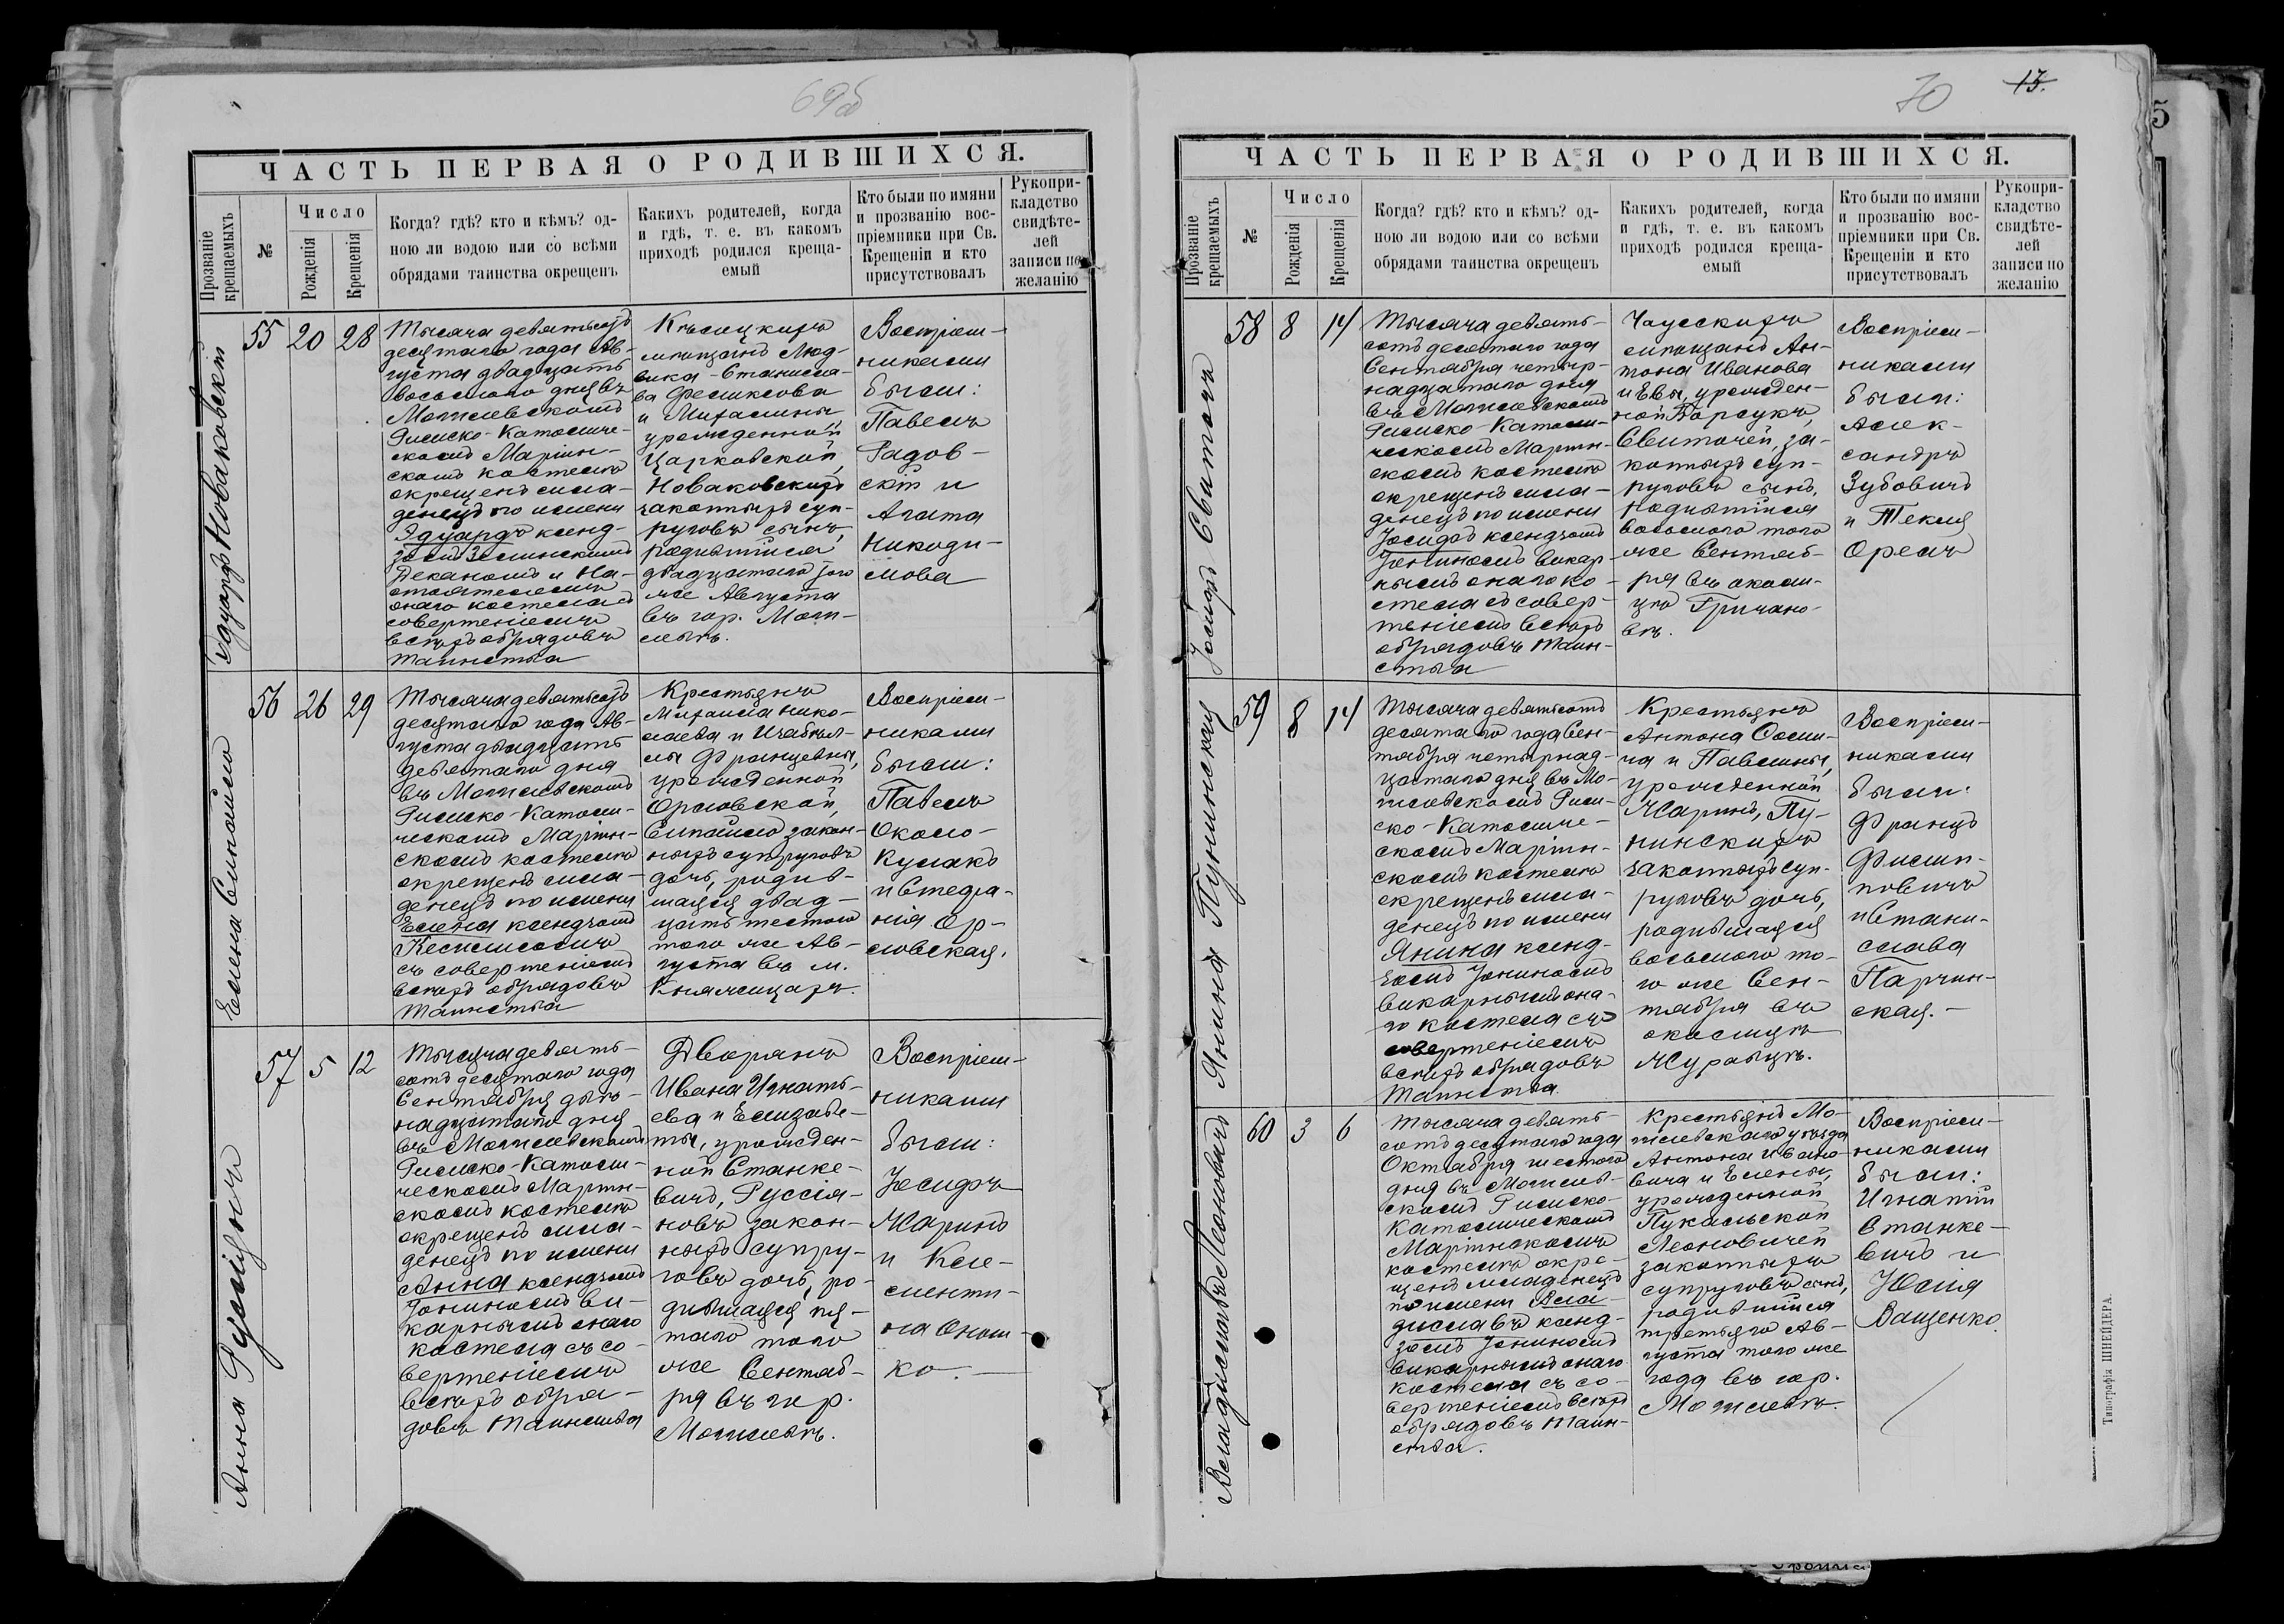 69об
ЧАСТЬ ПЕРВАЯ О РОДИВШИХСЯ.
Прозваніе крещаемыхъ
№
Число
Рожденія
Крещенія
Когда? гдѣ? кто и кѣмъ? од-
ною ли водою или со всѣми
обрядами таинства окрещенъ
Какихъ родителей, когда
и гдѣ, т. е. въ какомъ
приходѣ родился креща-
емый
Кто были по имяни
и прозванію вос-
пріемники при Св.
Крещеніи и кто
присутствовалъ
Рукопри-
кладство
свидѣте-
лей
записи по
желанію
Эдуардъ Новаковскій
55
20
28
Тысяча девятьсотъ
десятаго года Ав-
густа двадцать
восьмого дня въ
Могилевскомъ
Римско-Католиче-
скомъ Маріин-
скомъ костелѣ
окрещенъ мла-
денецъ по имени
Эдуардъ ксенд-
зомъ Зелинскимъ
Деканомъ и На-
стоятелемъ
онаго костела съ
совершеніемъ
всѣхъ обрядовъ
таинства
мѣщанъ Люд-
вика-Станисла-
ва Феликсова
и Михалины,
урожденной
Царковской,
Новаковскихъ
законныхъ суп-
руговъ сынъ,
родившійся
двадцатаго того
же Августа
въ гор. Моги-
левѣ.
Воспріем-
никами
были:
Павелъ
Радов-
скій и
Агата
Никоди-
мова
Елена Сипайло
56
26
29
Тысяча девятьсотъ
десятаго года Ав-
густа двадцать
девятаго дня
въ Могилевскомъ
Римско-Католи-
ческомъ Маріин-
скомъ костелѣ
окрещенъ мла-
денецъ по имени
Елена ксендзомъ
съ совершеніемъ
всѣхъ обрядовъ
таинства
Крестьянъ
Михаила Нико-
лаева и Изабел-
лы Францевны,
урожденной
Орловской,
Сипайло закон-
ныхъ супруговъ
дочь, родив-
шаяся двад-
цать шестого
того же Ав-
густа въ м.
Княжицахъ.
Воспріем-
никами
были:
Павелъ
Около-
Кулакъ
и Стефа-
нія Ор-
ловская.
Анна Руссіянъ
57
5
12
Тысяча девять-
сотъ десятаго года
Сентября двѣ-
надцатаго дня
въ Могилевскомъ
Римско-Католи-
ческомъ Маріин-
скомъ костелѣ
окрещенъ мла-
денецъ по имени
Анна ксендзомъ
Іониномъ ви-
карнымъ онаго
костела съ со-
вершеніемъ
всѣхъ обря-
довъ таинства
Дворянъ
Ивана Игнать-
ева и Елизаве-
ты, урожден-
ной Станке-
вичъ, Руссія-
новъ закон-
ныхъ супру-
говъ дочь, ро-
дившаяся пя-
таго того
же Сентяб-
ря въ гор.
Могилевѣ.
Воспріем-
никами
были:
Іосифъ
Жаринъ
и Кле-
менти-
на Онош-
ко.
70
13.
ЧАСТЬ ПЕРВАЯ О РОДИВШИХСЯ.
Прозваніе крещаемыхъ
№
Число
Рожденія
Крещенія
Когда? гдѣ? кто и кѣмъ? од-
ною ли водою или со всѣми
обрядами таинства окрещенъ
Какихъ родителей, когда
и гдѣ, т. е. въ какомъ
приходѣ родился креща-
емый
Кто были по имяни
и прозванію вос-
пріемники при Св.
Крещеніи и кто
присутствовалъ
Рукопри-
кладство
свидѣте-
лей
записи по
желанію
Іосифъ Свиточъ
58
8
14
Тысяча девять-
сотъ десятаго года
Сентября четыр-
надцатаго дня
въ Могилевскомъ
Римско-Католи-
ческомъ Маріин-
скомъ костелѣ
окрещенъ мла-
денецъ по имени
Іосифъ ксендзомъ
Іониномъ викар-
нымъ онаго ко-
стела съ совер-
шеніемъ всѣхъ
обрядовъ таин-
ства
Чаусскихъ
мѣщанъ Ан-
тона Иванова
и Евы, урожден-
ной Барсукъ,
Свиточей, за-
конныхъ суп-
руговъ сынъ,
родившійся
восьмого того
же Сентяб-
ря въ околи-
цѣ Гричано-
вѣ.
Воспріем-
никами
были:
Алек-
сандръ
Зубовичъ
и Текля
Орелъ
Янина Пунинская
59
8
14
Тысяча девятьсотъ
десятаго года Сен-
тября четырнад-
цатаго дня въ Мо-
гилевскомъ Рим-
ско-Католиче-
скомъ Маріин-
скомъ костелѣ
окрещенъ мла-
денецъ по имени
Янина ксенд-
зомъ Іониномъ
викарнымъ она-
го костела съ
совершеніемъ
всѣхъ обрядовъ
таинства.
Крестьянъ
Антона Осипо-
ва и Павлины,
урожденной
Жаринъ, Пу-
нинскихъ
законныхъ суп-
руговъ дочь,
родившаяся
восьмого то-
го же Сен-
тября въ
околицѣ
Журавцѣ.
Воспріем-
никами
были:
Францъ
Филип-
повичъ
и Стани-
слава
Парчин-
ская.
Владиславъ Леоновичъ
60
3
6
Тысяча девять-
сотъ десятаго года
Октября шестого
дня въ Могилев-
скомъ Римско-
Католическомъ
Маріинскомъ
костелѣ окре-
щенъ младенецъ
по имени Вла-
диславъ ксенд-
зомъ Іониномъ
викарнымъ онаго
костела съ со-
вершеніемъ всѣхъ
обрядовъ таин-
ства.
Крестьянъ Мо-
гилевскаго уѣзда
Антона Ивано-
вича и Елены,
урожденной
Пукальской
Леоновичей
законныхъ
супруговъ сынъ,
родившійся
третьяго Ав-
густа того же
года въ гор.
Могилевѣ.
Воспріем-
никами
были:
Игнатій
Станке-
вичъ и
Юлія
Ващенко.
Типографія ШНЕЙДЕРА.
5